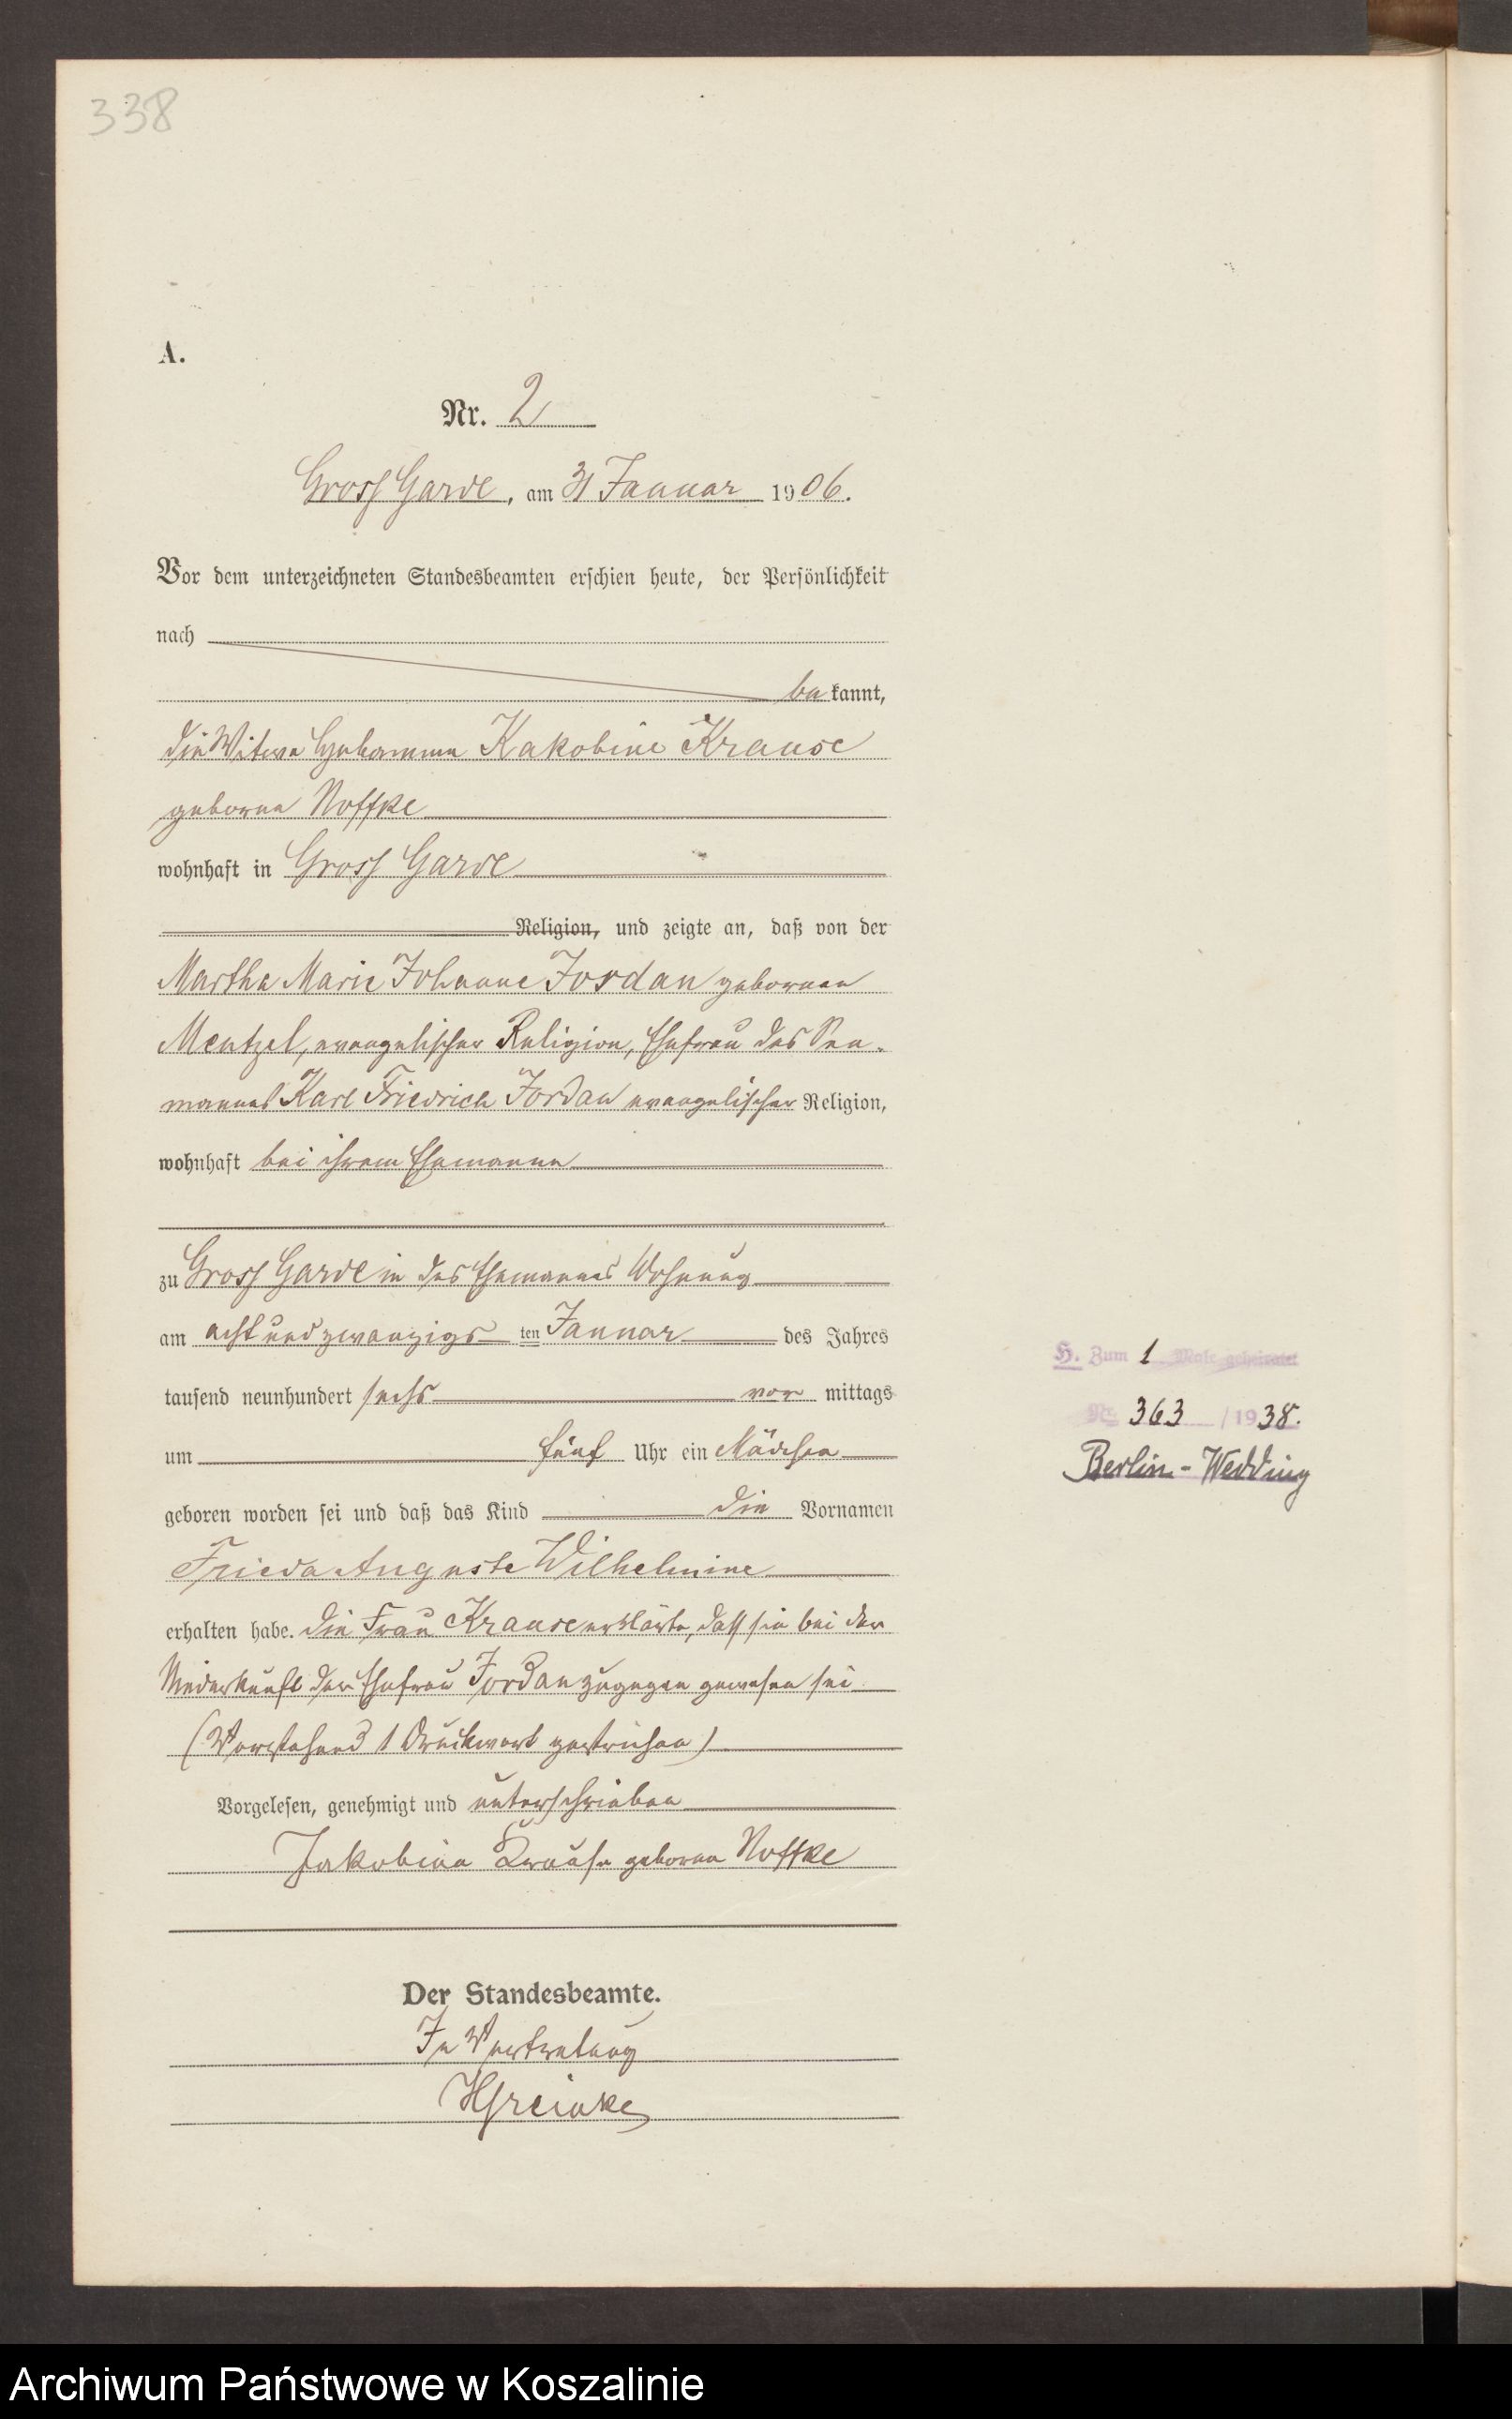 338
A.
Nr. 2
Gross Garde, am 31 Januar 1906.
Vor dem unterzeichneten Standesbeamten erschien heute, der Persönlichkeit
nach
be kannt,
die Witwe Hebamme Kakobine Krause
geborne Noffke
wohnhaft in Gross Garde
Religion, und zeigte an, daß von der
Martha Marie Johanne Jordan gebornen
Mentzel, evangelischer Religion, Ehefrau des See-
mannes Karl Friedrich Jordan evangelischer Religion,
wohnhaft bei ihrem Ehemanne
zu Gross Garde in des Ehemannes Wohnung
am acht und zwanzigs ten Januar des Jahres
tausend neunhundert sechs vor mittags
um fünf Uhr ein Mädchen
geboren worden sei und daß das Kind die Vornamen
Frieda Auguste Wilhelmine
erhalten habe. Die Frau Krause erklärte, dass sie bei der
Niederkunft der Ehefrau Jordan zugegen gewesen sei
(Vorstehend 1 Druckwort gestrichen)
Vorgelesen, genehmigt und unterschrieben
Jakobine Krause geborne Noffke
Der Standesbeamte.
In Vertretung
H. Zum 1 Male geheiratet
Nr. 363 /1938.
Berlin-Wedding
Archiwum Państwowe w Koszalinie